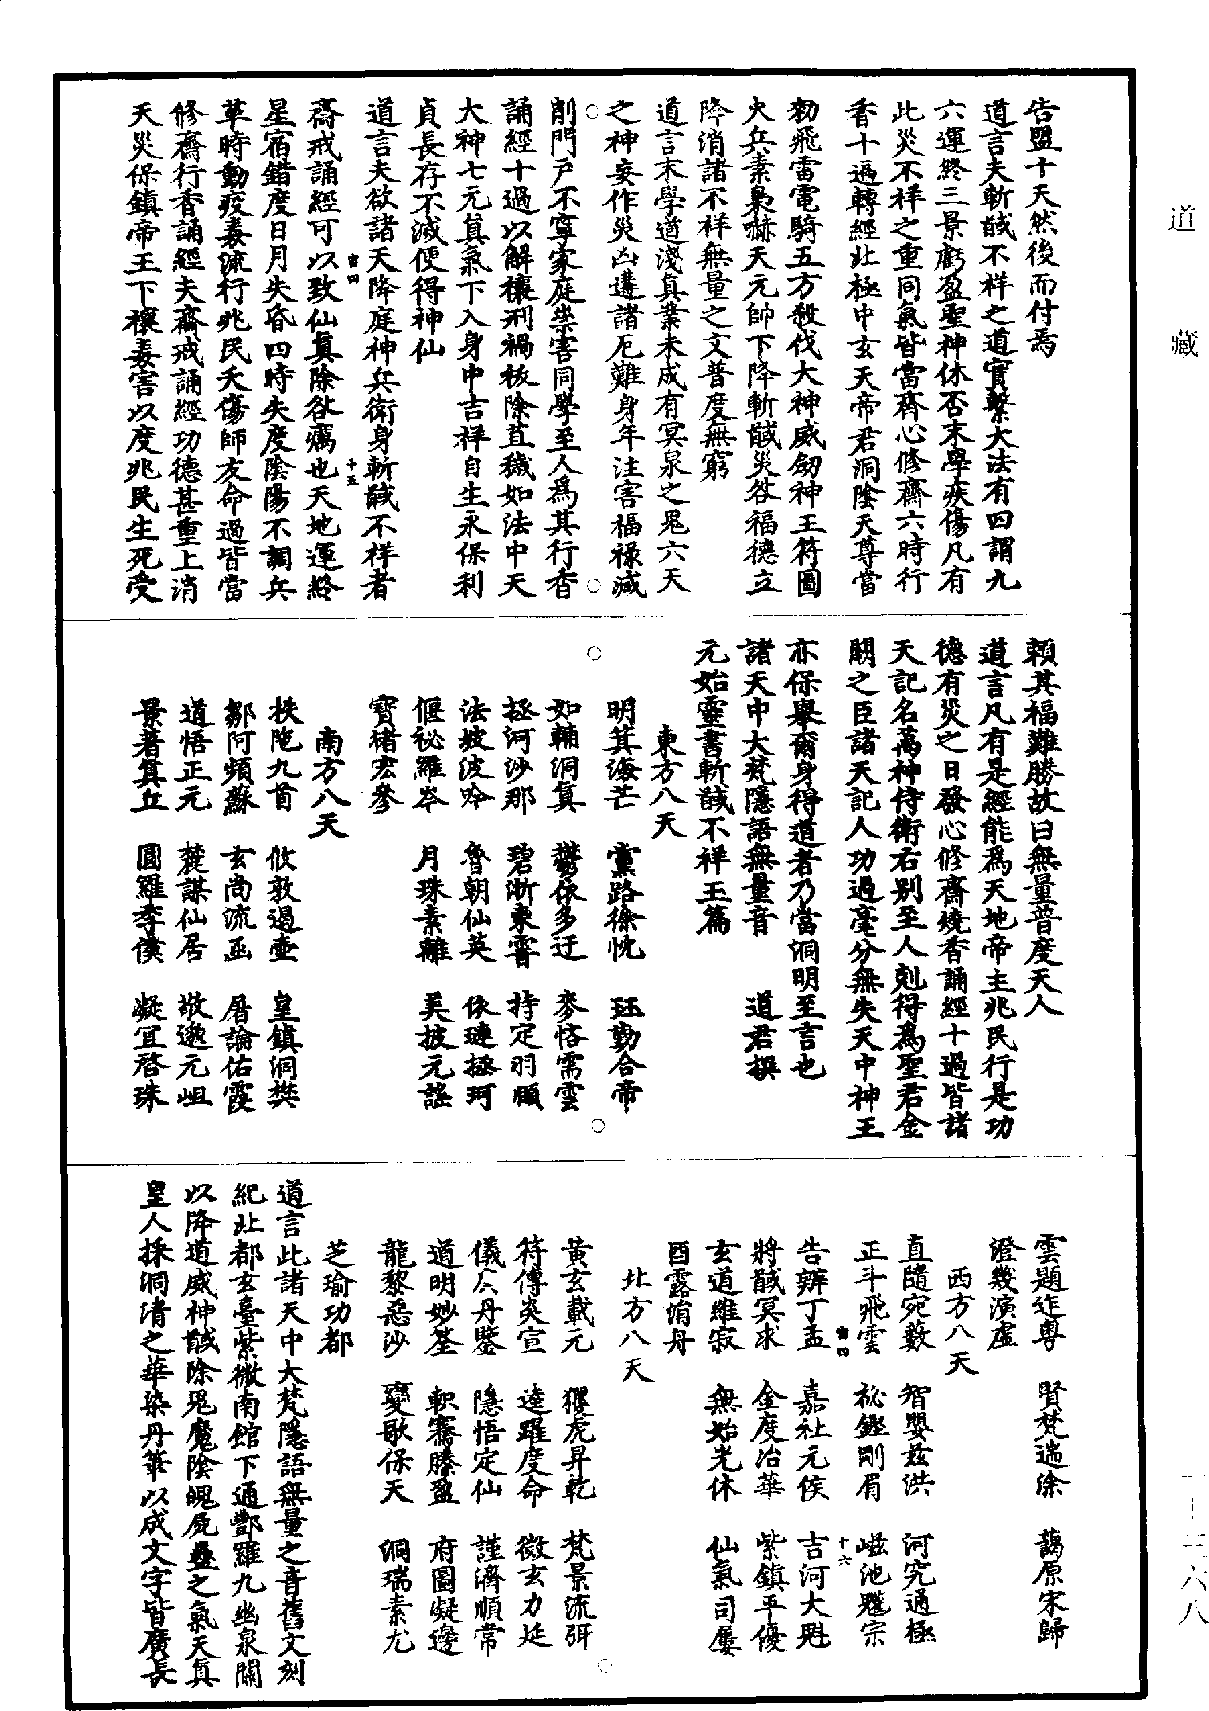 道藏
告盟十天然後而付焉
道言夫斬馘不祥之道實繫大法有四謂九
六運終三景虧盈聖神休否末學疾傷凡有
此災不祥之重同氣皆當齋心修齋六時行
香十遍轉經北極中玄天帝君洞陰天尊當
勑飛雷電騎五方殺伐大神威劒神王符圖
火兵素梟赫天元帥下降斬馘災咎福德立
降消諸不祥無量之文普度無窮
道言末學道淺真業未成有冥泉之鬼六天
之神妄作災凶遘諸厄難身年注害福祿減
削門戶不寧家庭祟害同學至人為其行香
誦經十過以解禳刑禍袚除苴穢如法中天
大神七元真氣下入身中吉祥自生永保利
貞長存不滅便得神仙
道言夫欲諸天降庭神兵衛身斬馘不祥者
齋戒誦經可以致仙真除谷癘也天地運終
星宿錯度日月失昏四時失度陰陽不調兵
革時動疫毒流行兆民夭傷師友命過皆當
修齋行香誦經夫齋戒誦經功德甚重上消
天災保鎮帝王下禳毒害以度兆民生死受
賴其福難勝故曰無量普度天人
道言凡有是經能為天地帝主兆民行是功
德有災之日發心修齋燒香誦經十過皆諸
天記名萬神侍衛右別至人剋得為聖君金
闕之臣諸天記人功過毫分無失天中神王
亦保舉爾身得道者乃當洞明至言也
諸天中大梵隱語無量音 道君撰
元始靈書斬馘不祥玉篇
東方八天
明箕海芒 黨路徐忱 珏勤合帝
如輔洞真 鬱依多迂 麥恪需雲
拯河沙那 碧淅東霄 持定羽順
法坡波吟 魯朝仙英 依璉拯珂
偃祕羅岑 月珠素離 美披元謠
寶褚宏參
南方八天
秩陁九首 攸敦過壺 皇鎮洞樊
鄒阿頻蘇 玄尚流函 屠論佑霞
道悟正元 麓謀仙居 敬邀元岨
景著真丘 圓羅李僕 凝宜啓珠
雲題迮專 賢梵遄徐 藹原宋歸
澄幾演虛
西方八天
直隨宛藪 智嬰茲洪 河究通極
正斗飛雲 祕鏗剛眉 㟃池魒宗
告辨丁孟 嘉社元侯 吉河大魁
將馘冥求 金度冶華 紫鎮平優
玄道維寂 無始光休 仙氣司屢
酉露消丹
北方八天
黃玄載元 玃虎昇乾 梵景流弭
符傅炎宣 逵躍度命 微玄力延
儀仄丹鑒 隱悟定仙 謹濟順常
道明妙荃 軹騫滕盈 府圖凝邊
龍黎惡沙 變歌保天 洞瑞素尤
芝瑜功都
道言此諸天中大梵隱語無量之音舊文刻
紀北都玄臺紫微南館下通酆羅九幽泉關
以降道威神馘除鬼魔陰䰟屍㽮之氣天真
皇人採洞清之華染丹筆以成文字皆廣長